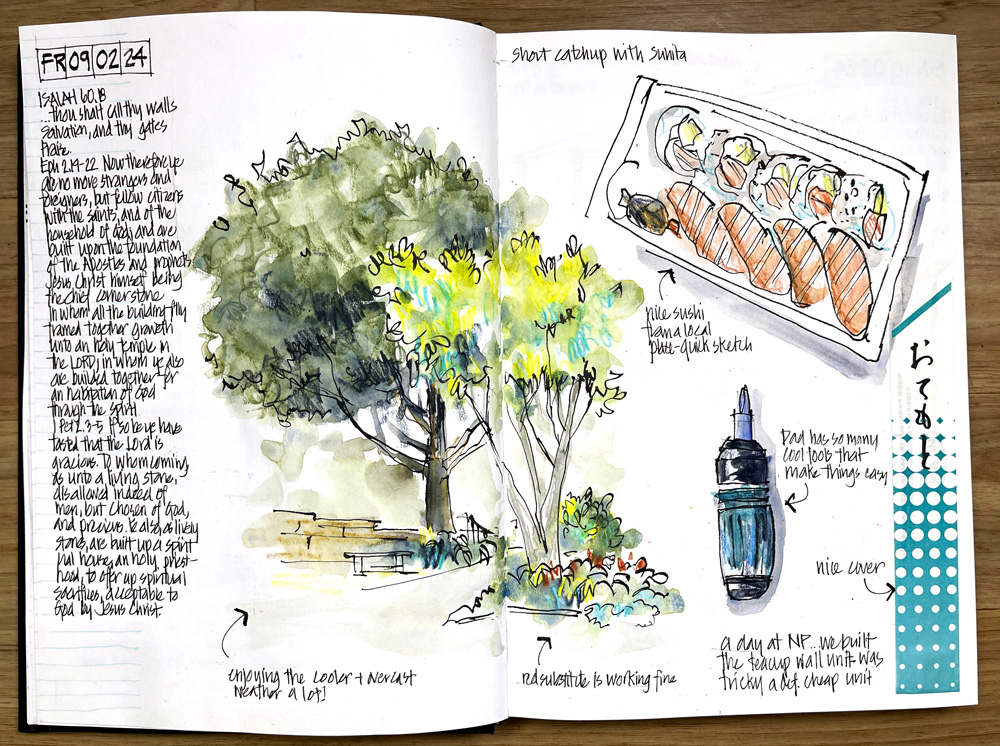 FR 09 02 24
ISAIAH 60.18
...thou shalt call thy walls
salvation, and thy gates
Praise.
Eph 2.14-22 Now therefore ye
are no more strangers and
foreigners, but fellow citizens
with the saints, and of the
household of God, and are
built upon the foundation
of the Apostles and prophets
Jesus Christ himself being
the chief cornerstone
In whom all the building fitly
framed together groweth
unto an holy temple in
the LORD, in whom ye also
are builded together for
an habitation of God
through the Spirit
1 Pet 2.3-5 If so be ye have
tasted that the Lord is
gracious. To whom coming,
as unto a living stone,
disallowed indeed of
men, but chosen of God,
and precious. Ye also, as lively
stones, are built up a spirit
ual house, an holy priest-
hood, to offer up spiritual
sacrifices, acceptable to
God by Jesus Christ.
enjoying the cooler + overcast
weather a lot!
short catchup with Sunita
nice sushi
from a local
place-quick sketch
おてもと
Dad has so many
cool tools that
make things easy
nice cover
red substitute is working fine
a day at NP... we built
the teacup wall unit. was
tricky a def. cheap unit